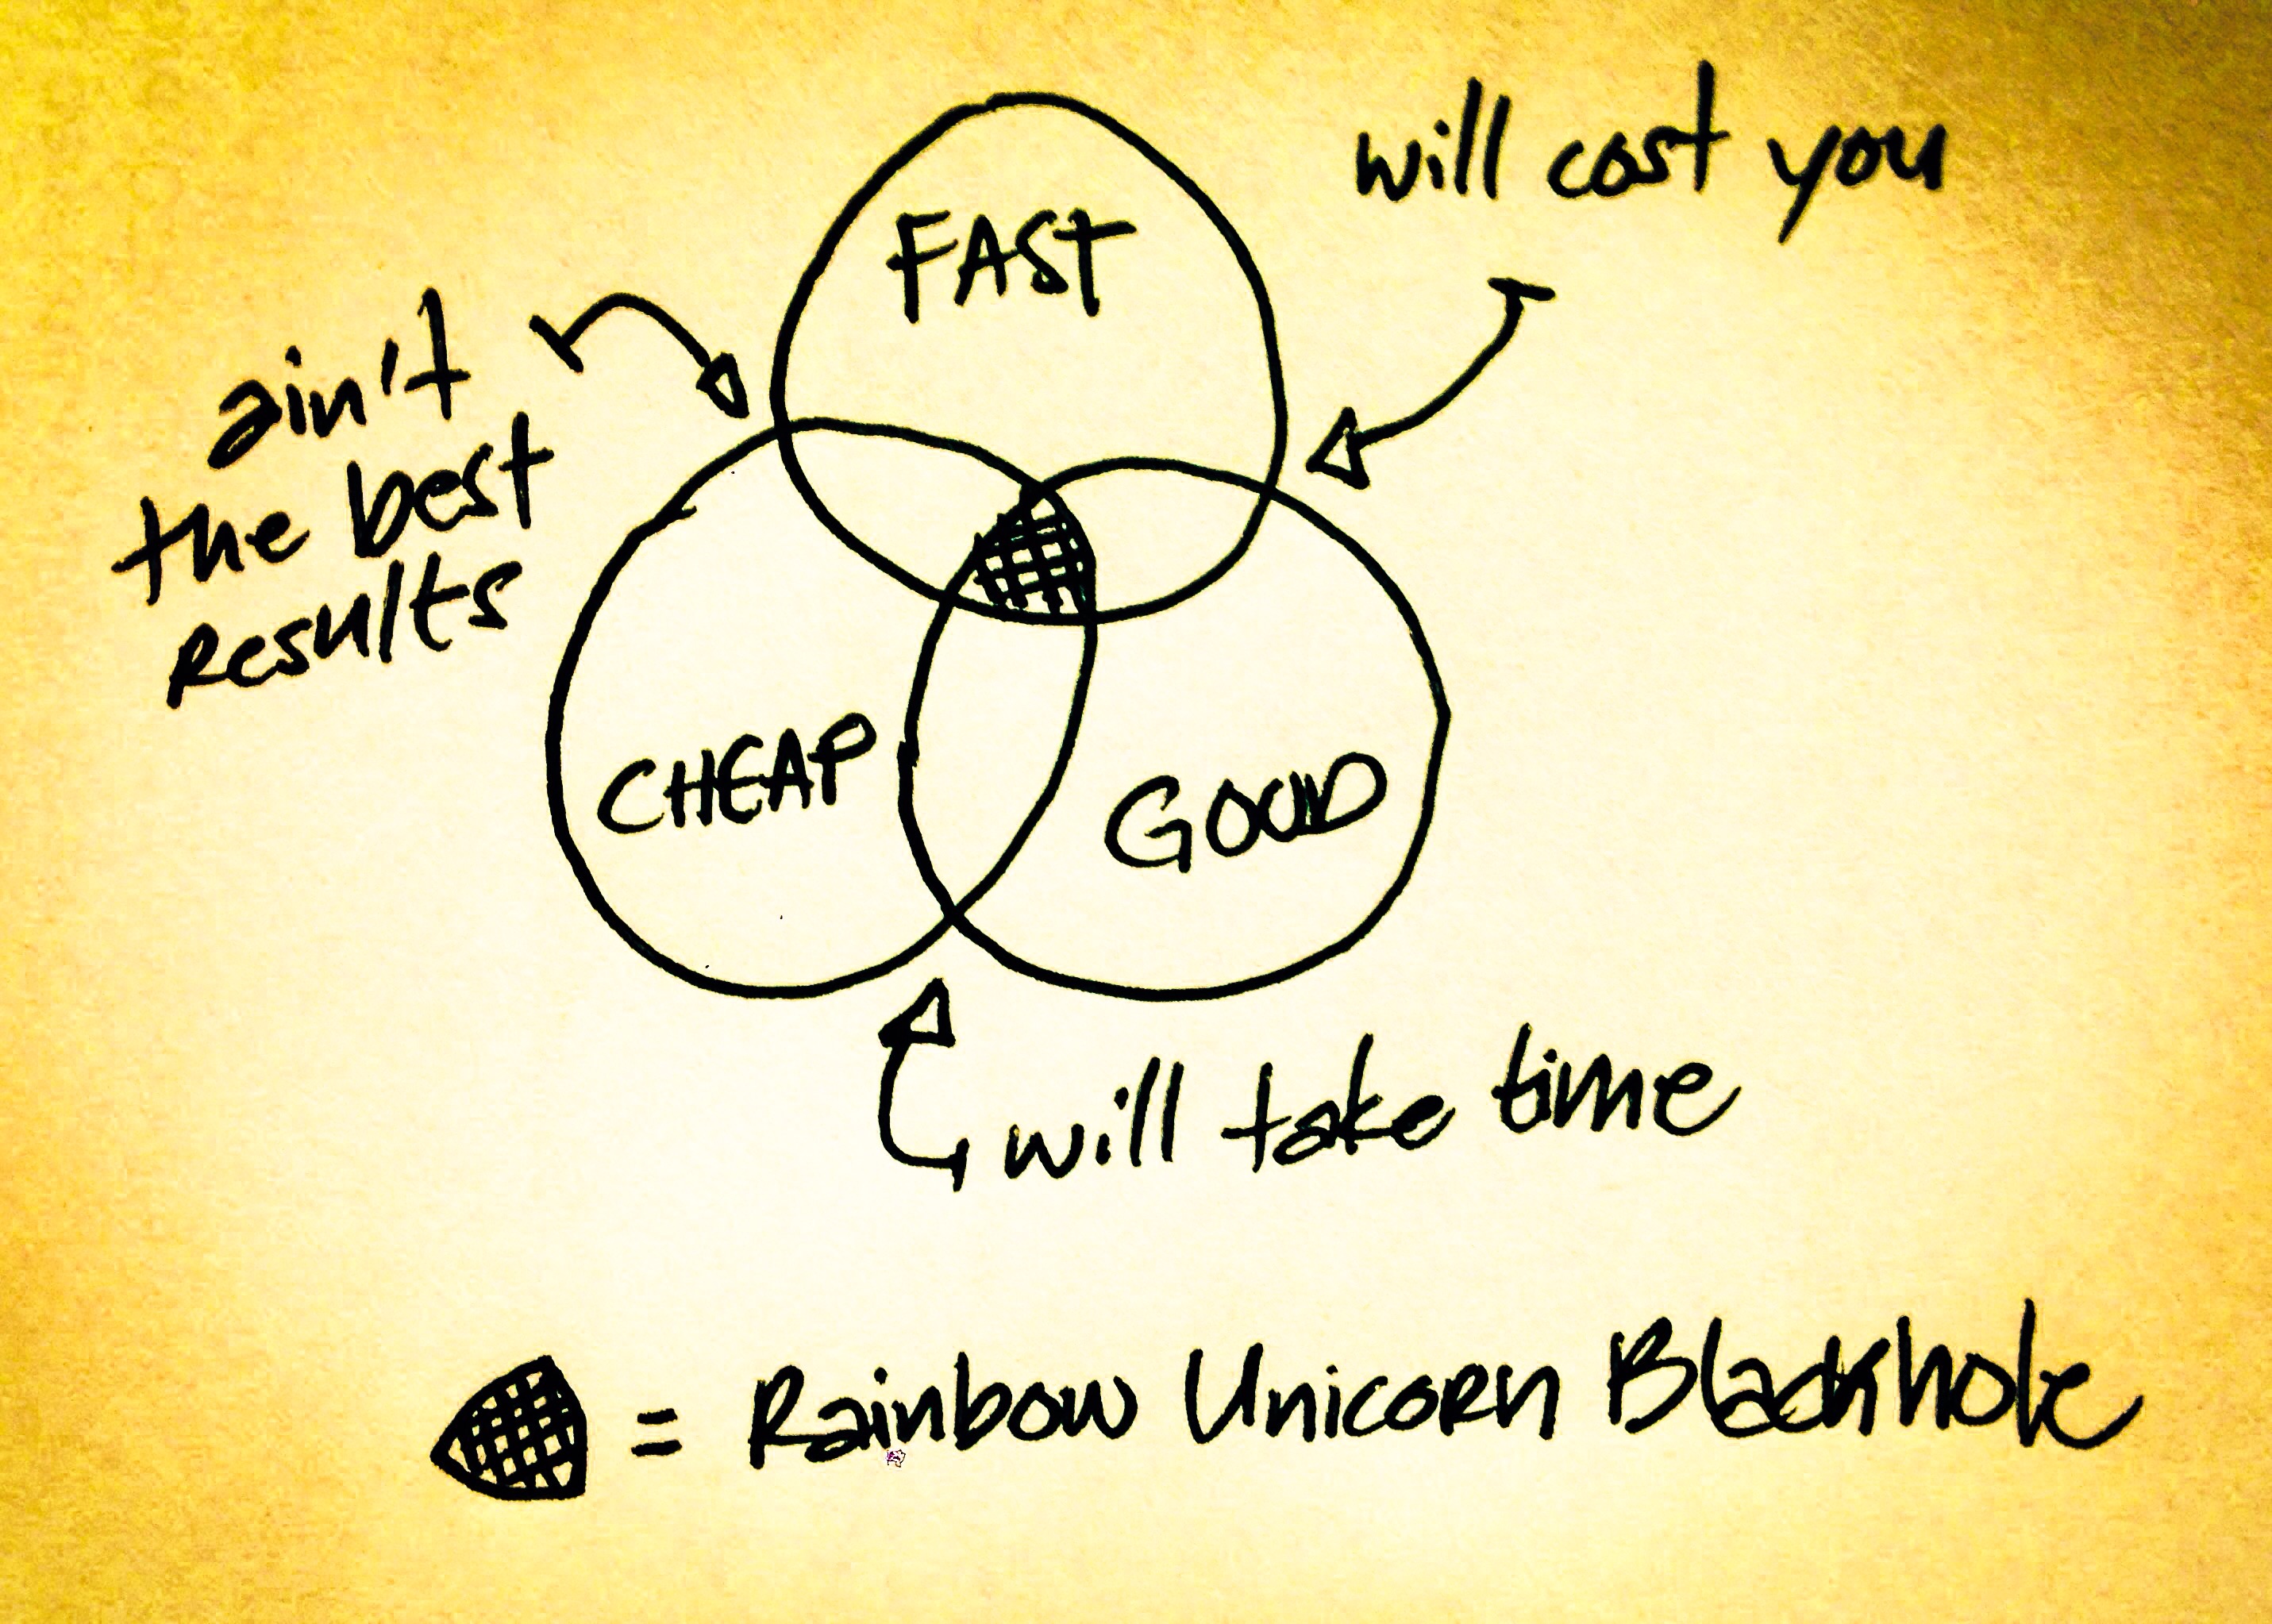 will cost you
FAST
ain't
the best
results
CHEAP
GOOD
will take time
= Rainbow Unicorn Blackhole